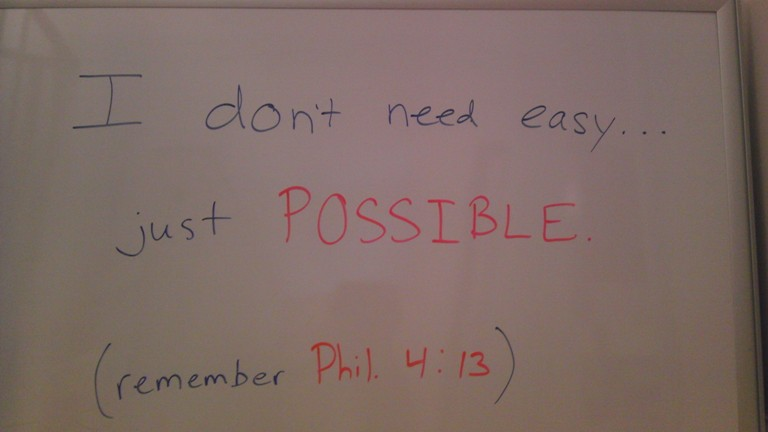 I don't need easy...
just POSSIBLE.
(remember Phil. 4:13)